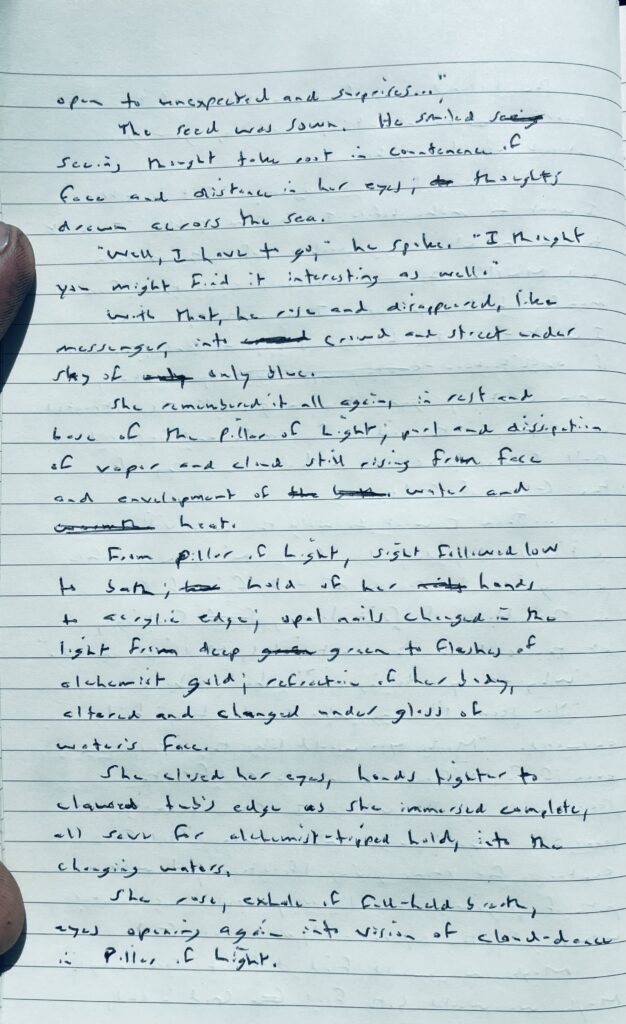 open to unexpected and surprises..."
The seed was sown. He smiled seeing
seeing thought take root in countenance of
face and distance in her eyes; thoughts
drawn across the sea.
"Well, I have to go," he spoke. "I thought
you might find it interesting as well."
With that, he rose and disappeared, like
messenger, into crowd and street under
sky of only blue.
She remembered it all again, in rest and
base of the Pillar of Light; purl and dissipation
of vapor and cloud still rising from face
and envelopment of the water and
warmth heat.
From pillar of Light, sight followed low
to bath; hold of her hands
to acrylic edge; opal nails changed in the
light from deep green green to flashes of
alchemist gold; refraction of her body,
altered and changed under gloss of
water's face.
She closed her eyes, hands tighter to
tub's edge as she immersed complete,
all save for alchemist-tipped hold, into the
changing waters.
She rose, exhale of full-held breath,
eyes opening again into vision of cloud-dance
in Pillar of Light.